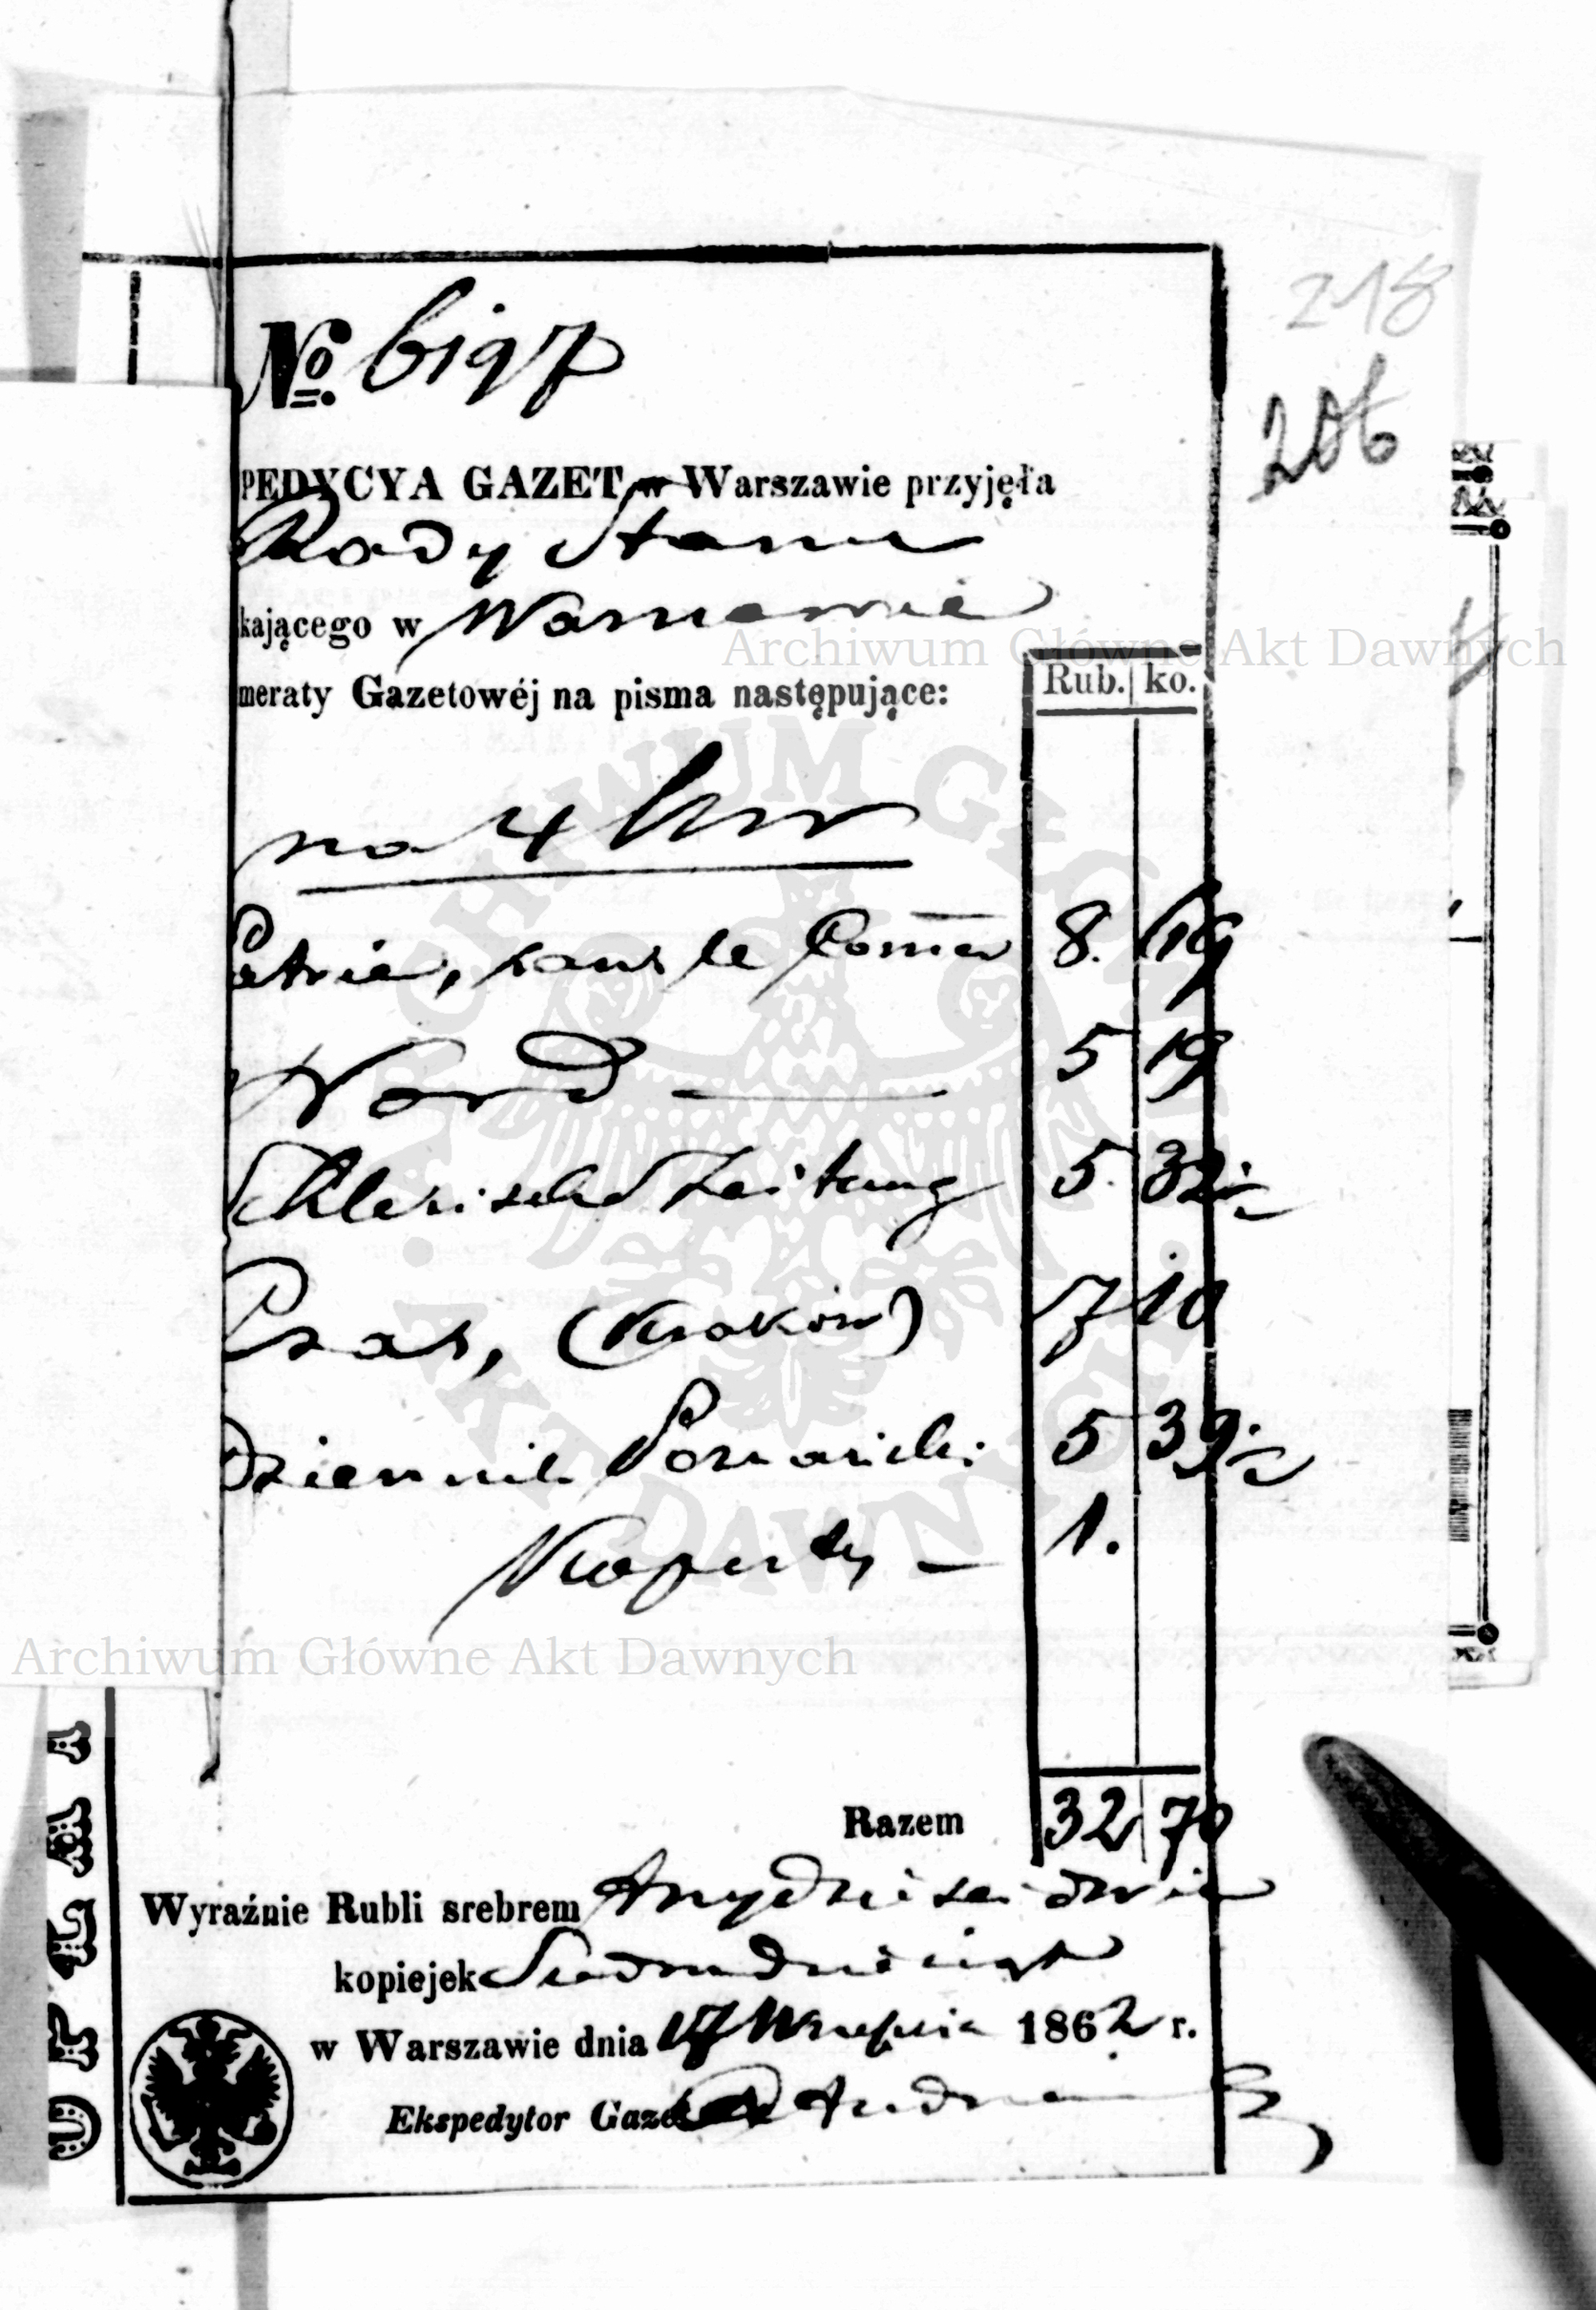 218
206
№ 6197
PEDYCYA GAZET w Warszawie przyjęła
Rady Stanu
kającego w Warszawie
meraty Gazetowéj na pisma następujące:
Rub. ko.
na 4 kw
Patrie, sans le 8. 69
Nord — 5 19
Schlesische Zeitung 5. 32½
Czas, (Kraków) 7 10
Dziennik Poznański 5 39½
Koperty — 1.
Razem 32 70
Wyraźnie Rubli srebrem Trzydzieści dwie
kopiejek Siedmdziesiąt
w Warszawie dnia 17 Września 1862 r.
Ekspedytor Gazet
Archiwum Główne Akt Dawnych
ARCHIWUM GŁÓWNE AKT DAWNYCH
Archiwum Główne Akt Dawnych